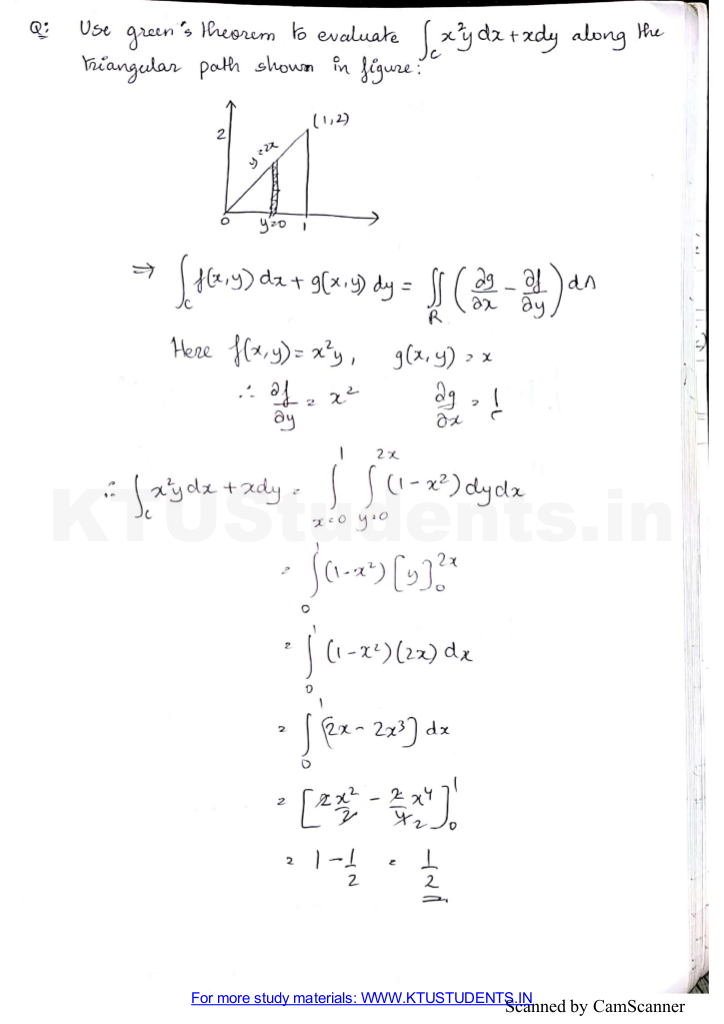 Q: Use green's theorem to evaluate ∫_C x²y dx + x dy along the
triangular path shown in figure:
2
(1,2)
y=2x
0 y=0 1
⇒ ∫_C f(x,y) dx + g(x,y) dy = ∬_R (∂g/∂x - ∂f/∂y) dA
Here f(x,y) = x²y, g(x,y) = x
∴ ∂f/∂y = x² ∂g/∂x = 1
∴ ∫_C x²y dx + x dy = ∫_{x=0}^{1} ∫_{y=0}^{2x} (1-x²) dy dx
KTUStudents.in
= ∫_0^1 (1-x²) [y]_0^{2x}
= ∫_0^1 (1-x²)(2x) dx
= ∫_0^1 [2x - 2x³] dx
= [2x²/2 - 2/4 x⁴ 2]_0^1
= 1 - 1/2 = 1/2
For more study materials: WWW.KTUSTUDENTS.IN
Scanned by CamScanner